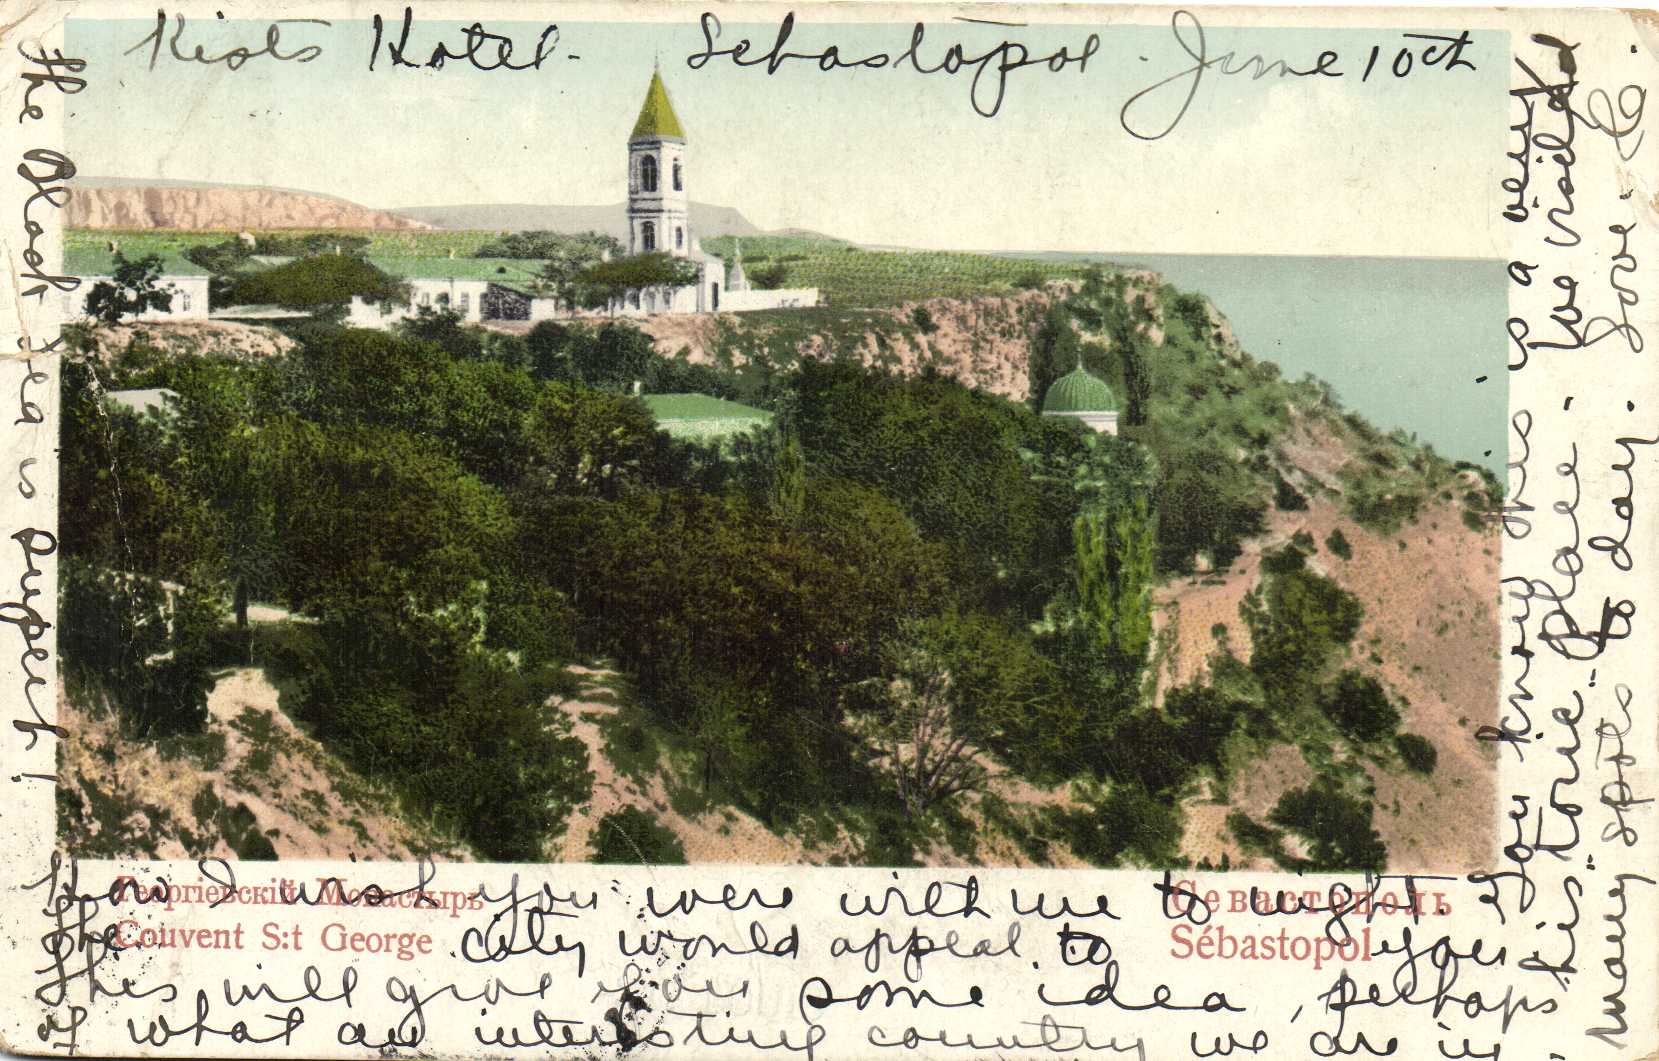 Kists Hotel - Sebastopol . June 10th
How I wish you were with me to night.
The city would appeal to you
This will give you some idea, perhaps
of what an interesting country we are in.
Георгіевскій Монастырь
Couvent S:t George
Севастополь
Sébastopol
You know this is a very
"his"toric" place - We visited
many spots to day. Love - C.
The Black Sea is superb!